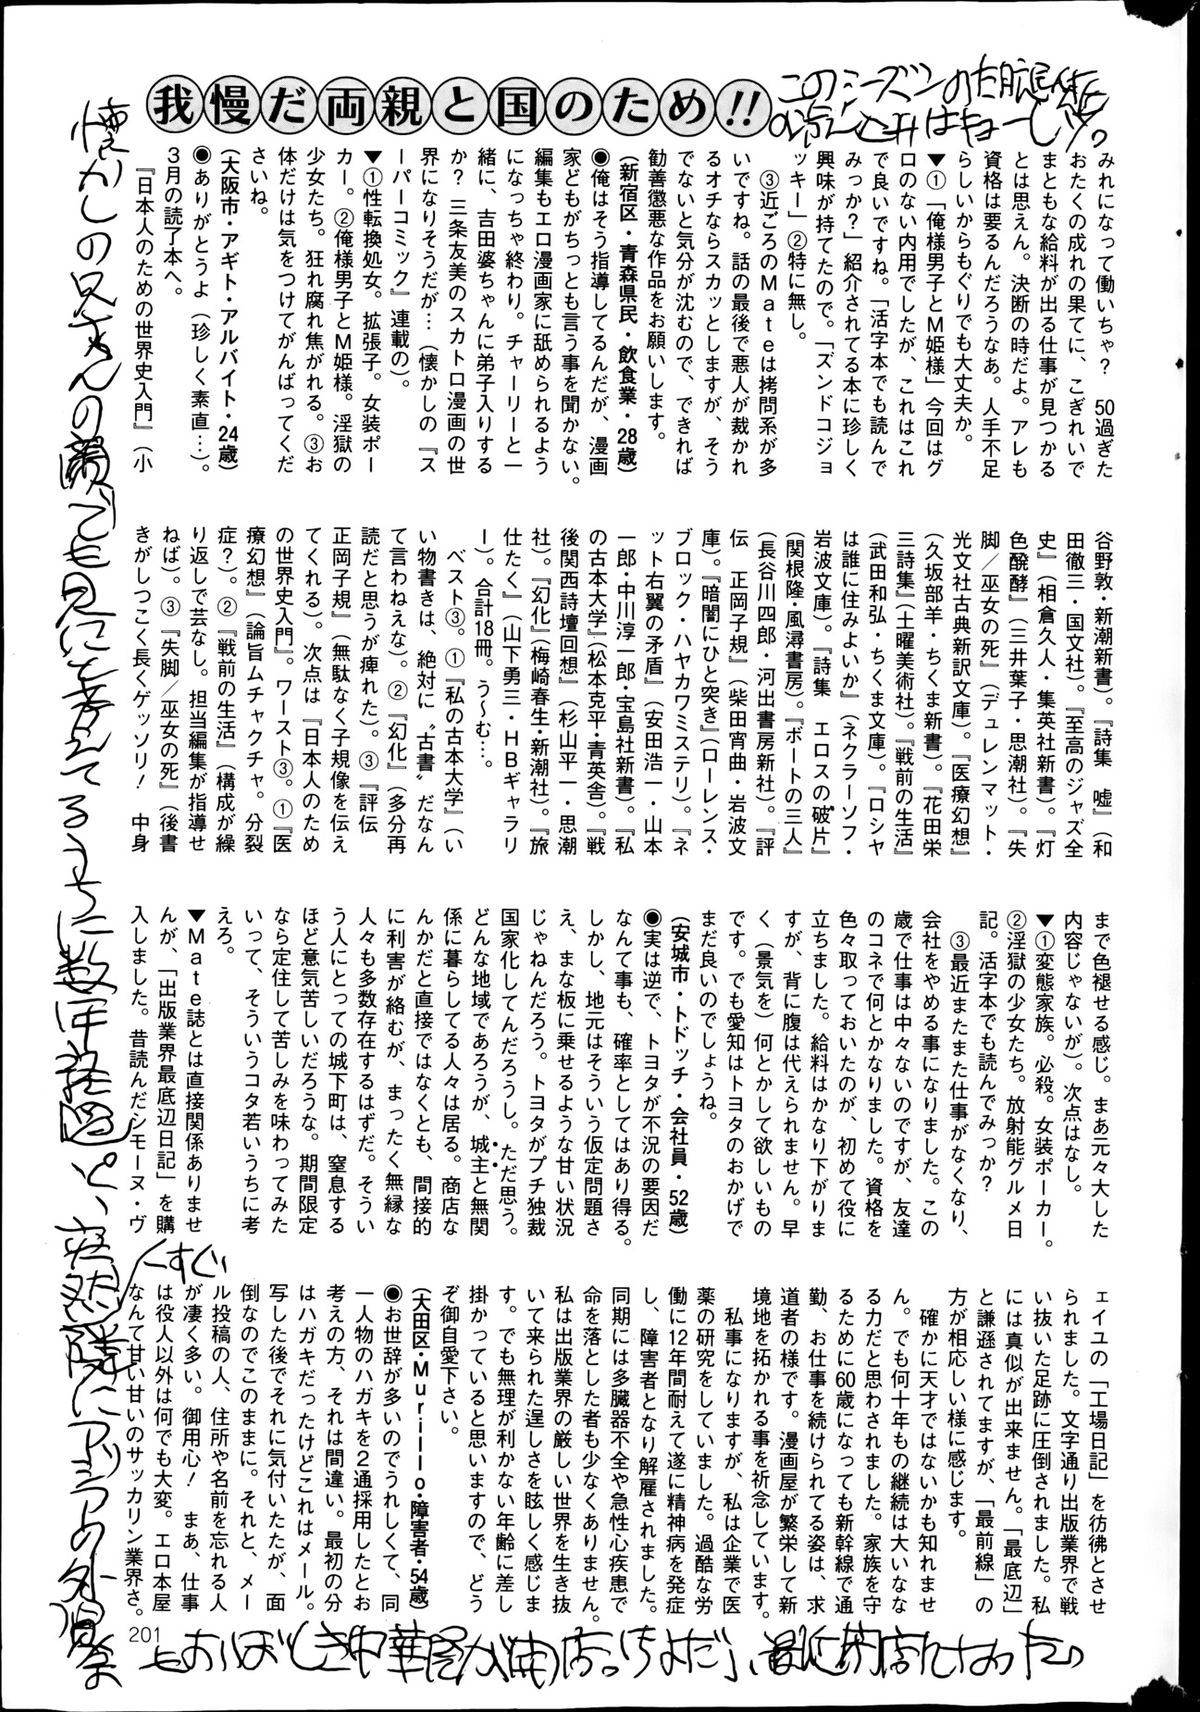 我慢だ両親と国のため!!
みれになって働いちゃ? 50過ぎた
おたくの成れの果てに、こぎれいで
まともな給料が出る仕事が見つかる
とは思えん。決断の時だよ。アレも
資格は要るんだろうなあ。人手不足
らしいからもぐりでも大丈夫か。
▼①「俺様男子とM姫様」今回はグ
ロのない内用でしたが、これはこれ
で良いですね。「活字本でも読んで
みっか?」紹介されてる本に珍しく
興味が持てたので。「ズンドコジョ
ッキー」②特に無し。
③近ごろのMateは拷問系が多
いですね。話の最後で悪人が裁かれ
るオチならスカッとしますが、そう
でないと気分が沈むので、できれば
勧善懲悪な作品をお願いします。
(新宿区・青森県民・飲食業・28歳)
◉俺はそう指導してるんだが、漫画
家どもがちっとも言う事を聞かない。
編集もエロ漫画家に舐められるよう
になっちゃ終わり。チャーリーと一
緒に、吉田婆ちゃんに弟子入りする
か? 三条友美のスカトロ漫画の世
界になりそうだが…(懐かしの『ス
ーパーコミック』連載の)。
▼①性転換処女。拡張子。女装ポー
カー。②俺様男子とM姫様。淫獄の
少女たち。狂れ腐れ焦がれる。③お
体だけは気をつけてがんばってくだ
さいね。
(大阪市・アギト・アルバイト・24歳)
◉ありがとうよ(珍しく素直…)。
3月の読了本へ。
『日本人のための世界史入門』(小
谷野敦・新潮新書)。『詩集 嘘』(和
田徹三・国文社)。『至高のジャズ全
史』(相倉久人・集英社新書)。『灯
色醗酵』(三井葉子・思潮社)。『失
脚/巫女の死』(デュレンマット・
光文社古典新訳文庫)。『医療幻想』
(久坂部羊・ちくま新書)。『花田栄
三詩集』(土曜美術社)。『戦前の生活』
(武田和弘・ちくま文庫)。『ロシヤ
は誰に住みよいか』(ネクラーソフ・
岩波文庫)。『詩集 エロスの破片』
(関根隆・風濤書房)。『ボートの三人』
(長谷川四郎・河出書房新社)。『評
伝 正岡子規』(柴田宵曲・岩波文
庫)。『暗闇にひと突き』(ローレンス・
ブロック・ハヤカワミステリ)。『ネ
ット右翼の矛盾』(安田浩一・山本
一郎・中川淳一郎・宝島社新書)。『私
の古本大学』(松本克平・青英舎)。『戦
後関西詩壇回想』(杉山平一・思潮
社)。『幻化』(梅崎春生・新潮社)。『旅
仕たく』(山下勇三・HBギャラリ
ー)。合計18冊。う〜む…。
ベスト③。①『私の古本大学』(い
い物書きは、絶対に〝古書〟だなん
て言わねえな)。②『幻化』(多分再
読だと思うが痺れた)。③『評伝
正岡子規』(無駄なく子規像を伝え
てくれる)。次点は『日本人のため
の世界史入門』。ワースト③。①『医
療幻想』(論旨ムチャクチャ。分裂
症?)。②『戦前の生活』(構成が繰
り返しで芸なし。担当編集が指導せ
ねば)。③『失脚/巫女の死』(後書
きがしつこく長くゲッソリ! 中身
まで色褪せる感じ。まあ元々大した
内容じゃないが)。次点はなし。
▼①変態家族。必殺。女装ポーカー。
②淫獄の少女たち。放射能グルメ日
記。活字本でも読んでみっか?
③最近またまた仕事がなくなり、
会社をやめる事になりました。この
歳で仕事は中々ないのですが、友達
のコネで何とかなりました。資格を
色々取っておいたのが、初めて役に
立ちました。給料はかなり下がりま
すが、背に腹は代えられません。早
く(景気を)何とかして欲しいもの
です。でも愛知はトヨタのおかげで
まだ良いのでしょうね。
(安城市・トドッチ・会社員・52歳)
◉実は逆で、トヨタが不況の要因だ
なんて事も、確率としてはあり得る。
しかし、地元はそういう仮定問題さ
え、まな板に乗せるような甘い状況
じゃねんだろう。トヨタがプチ独裁
国家化してんだろうし。ただ思う。
どんな地域であろうが、城主と無関
係に暮らしてる人々は居る。商店な
んかだと直接ではなくとも、間接的
に利害が絡むが、まったく無縁な
人々も多数存在するはずだ。そうい
う人にとっての城下町は、窒息する
ほど意気苦しいだろうな。期間限定
なら定住して苦しみを味わってみた
いって、そういうコタ若いうちに考
えろ。
▼Mate誌とは直接関係ありませ
んが、「出版業界最底辺日記」を購
入しました。昔読んだシモーヌ・ヴ
ェイユの「工場日記」を彷彿とさせ
られました。文字通り出版業界で戦
い抜いた足跡に圧倒されました。私
には真似が出来ません。「最底辺」
と謙遜されてますが、「最前線」の
方が相応しい様に感じます。
確かに天才ではないかも知れませ
ん。でも何十年もの継続は大いなな
る力だと思わされました。家族を守
るために60歳になっても新幹線で通
勤、お仕事を続けられてる姿は、求
道者の様です。漫画屋が繁栄して新
境地を拓かれる事を祈念しています。
私事になりますが、私は企業で医
薬の研究をしていました。過酷な労
働に12年間耐えて遂に精神病を発症
し、障害者となり解雇されました。
同期には多臓器不全や急性心疾患で
命を落とした者も少なくありません。
私は出版業界の厳しい世界を生き抜
いて来られた逞しさを眩しく感じま
す。でも無理が利かない年齢に差し
掛かっていると思いますので、どう
ぞ御自愛下さい。
(大田区・Murillo・障害者・54歳)
◉お世辞が多いのでうれしくて、同
一人物のハガキを2通採用したとお
考えの方、それは間違い。最初の分
はハガキだったけどこれはメール。
写した後でそれに気付いたたが、面
倒なのでこのままに。それと、メー
ル投稿の人、住所や名前を忘れる人
が凄く多い。御用心! まあ、仕事
は役人以外は何でも大変。エロ本屋
なんて甘い甘いのサッカリン業界さ。
201